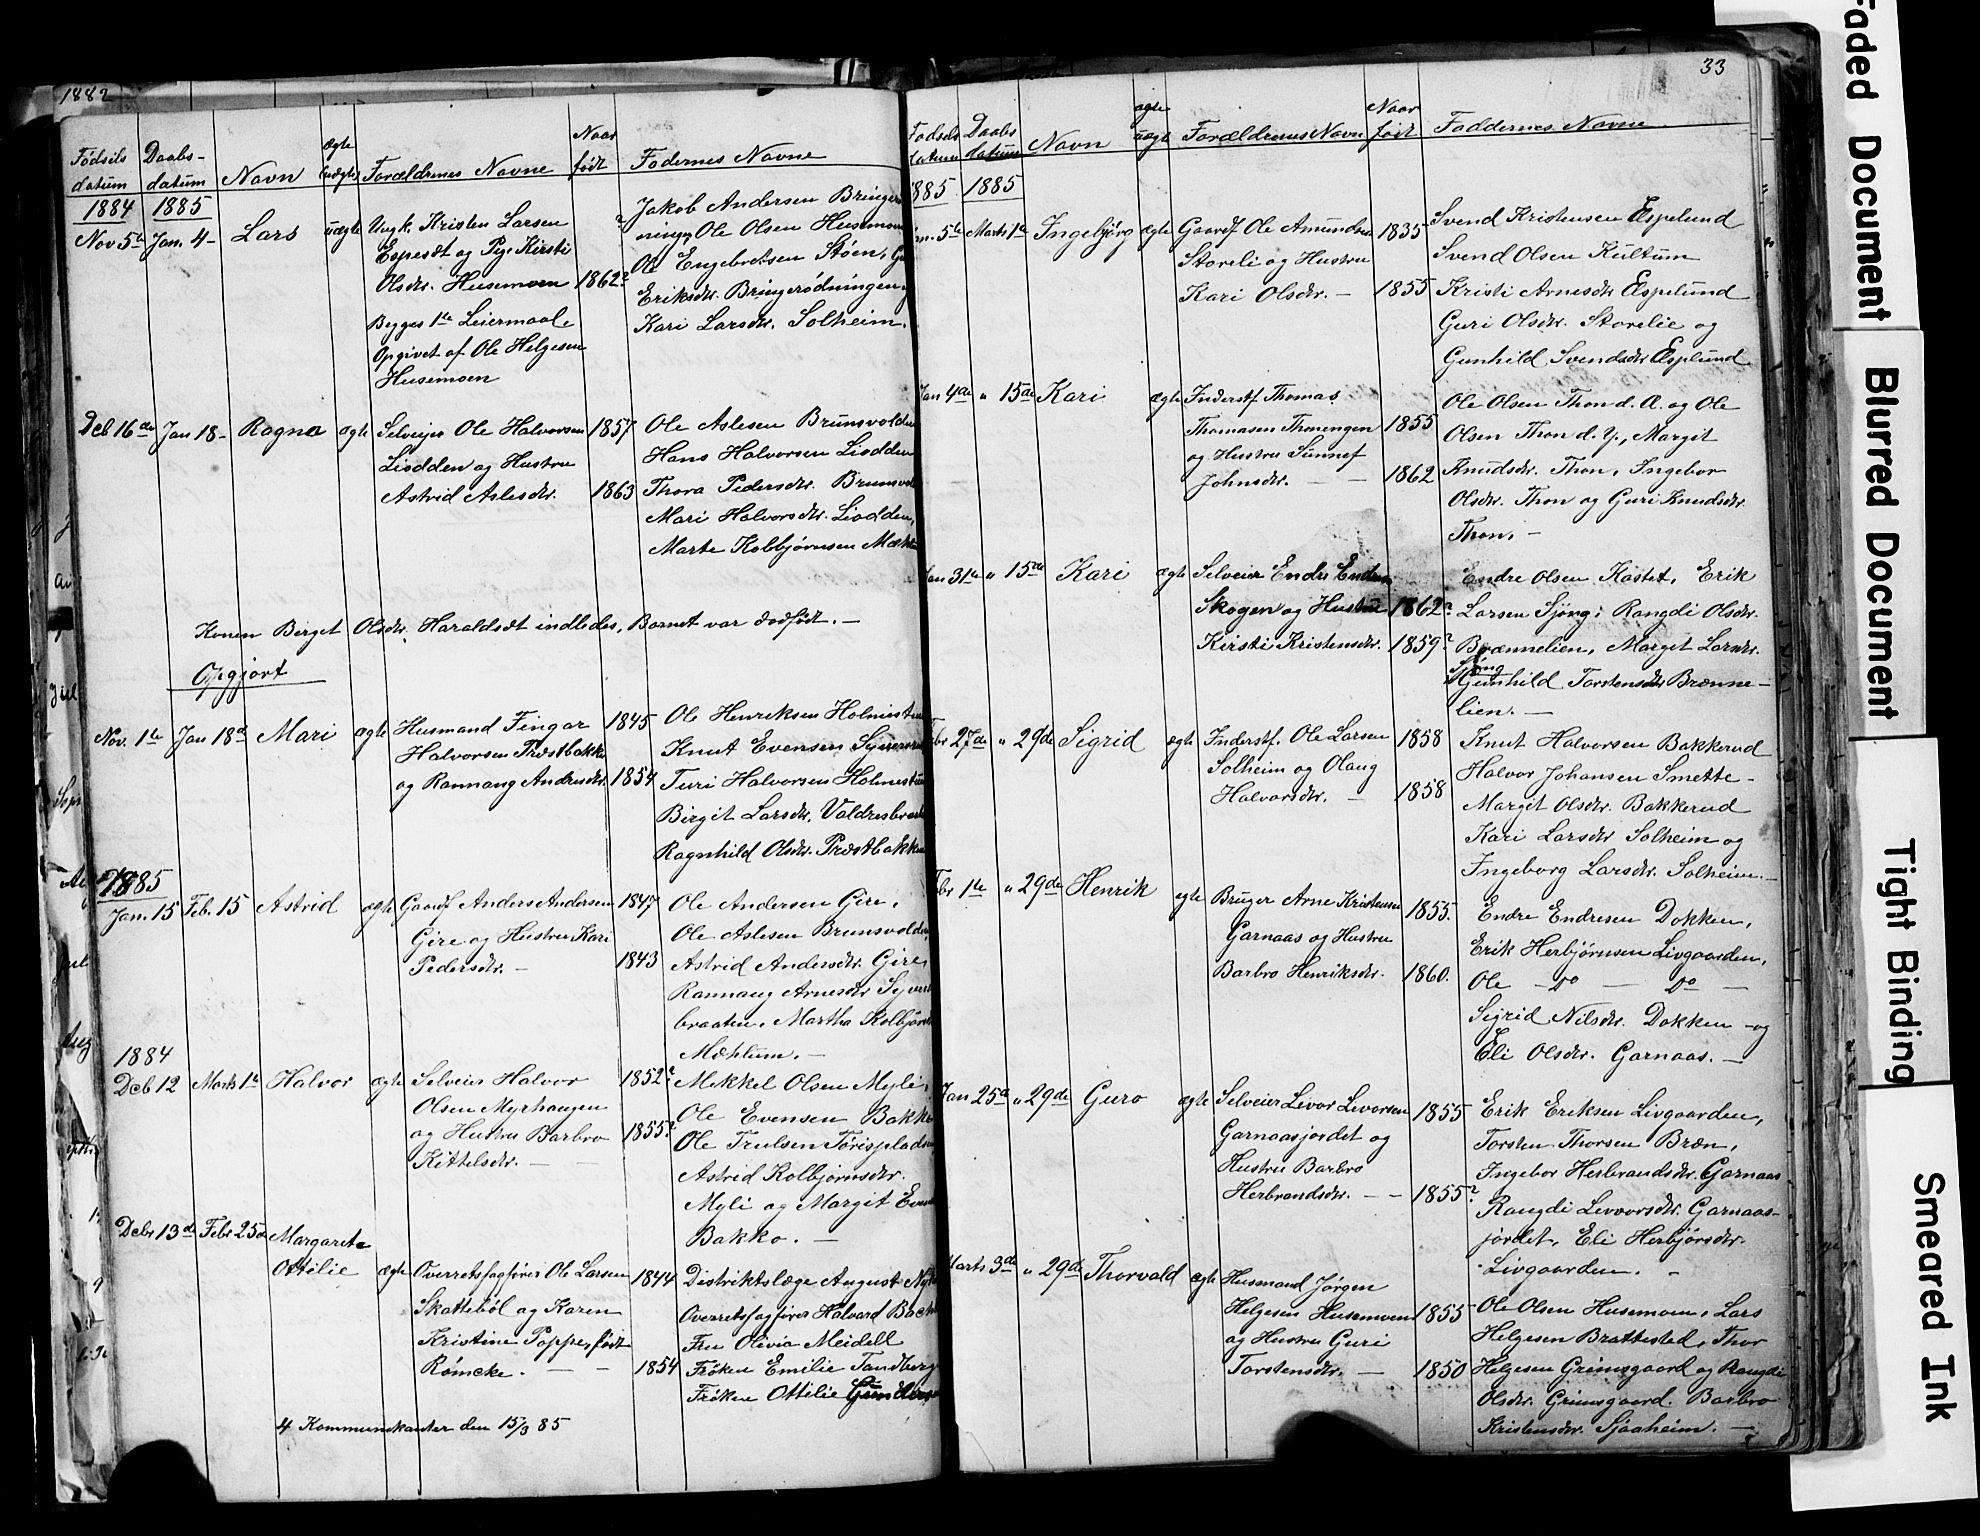 1882
Fødsels datum | Daabs-datum | Navn | ægte uægte | Forældrenes Navne | Naar født | Fadernes Navne
1884 1885
Nov 5te Jan. 4- Lars uægte Ungk. Kristen Larsen
Espesæt og Pige Kirsti
Olsdtr. Husemoen 1862?
Begges 1te Leiermaal.
Opgivet af Ole Helgesen
Husemoen
Jakob Andersen
Ole Olsen Husemoen
Ole Engebretsen Støen,
Eriksdtr. Bringerødningen
Kari Larsdtr. Solheim.
Deb 16de Jan 18- Ragna ægte Selveier Ole Halvorsen 1857
Liodden og Hustru
Astrid Aslesdtr. 1863
Ole Aslesen Brunsvolden
Hans Halvorsen Liodden
Thora Pedersdtr.
Mari Halvorsdtr. Liodden,
Marte Kolbjørnsen
Konen Birget Olsdtr. Haraldset indledes, Barnet var dødfødt. —
Opgjort
Nov. 1te Jan 18de Mari ægte Husmand Fingar 1845
Halvorsen Præstbakke
og Rannaug Andersdtr. 1854
Ole Henriksen
Knut Evensen
Turi Halvorsen
Birgit Larsdtr.
Ragnhild Olsdtr. Præstbakken
1885
Jan. 15 Feb. 15 Astrid ægte Gaardf Anders Andersen 1847
Gire og Hustru Kari
Pedersdtr. — 1843
Ole Andersen Gire,
Ole Aslesen Brunsvolden,
Astrid Andersdtr. Gire,
Rannaug Arnesdtr
braaten, Martha
Mæhlum. —
1884
Deb 12 Marts 1te Halvor ægte Selveier Halvor 1852?
Olsen Myrhaugen
og Hustru Barbro 1855?
Kittelsdtr. —
Mikkel Olsen Myli,
Ole Evensen Bakko
Ole Trulsen
Astrid Kolbjørnsdtr.
Myli og Margit
Bakko. —
Debr 13de Febr 25de Margarete
Ottilie ægte Overretssagfører Ole Larsen 1844
Skattebøl og Karen
Kristine Poppe, født
Rømcke. — 1854
Distriktslæge August
Overretssagfører Halvard
Fru Olivia Meidell
Frøken Emilie Tandberg
Frøken Ottilie
4 Kommunikanter den 15/3 85
33
Fødsels datum | Daabs datum | Navn | ægte uægte | Forældrenes Navn | Naar født | Faddernes Navne
1885 1885
5te Marts 1te Ingebjørg ægte Gaardf Ole Amundsen 1835
Storeli og Hustru
Kari Olsdtr. — 1855
Svend Kristensen Espelund
Svend Olsen Kultum
Kristi Arnesdtr Espelund
Guri Olsdtr. Storelie og
Gunhild Svendsdtr Espelund
Jan 4de " 15de Kari ægte Inderstf Thomas
Thomasen Thoningen 1855
og Hustru Sünnef
Johnsdtr. — 1862
Ole Olsen Thon d. Æ. og Ole
Olsen Thon d. Y., Margit
Knudsdtr. Thon, Ingebor
Olsdtr. Thon og Guri Knudsdtr.
Thon. —
Jan 31te " 15de Kari ægte Selveier Endre Endresen
Skogen og Hustru 1862?
Kirsti Kristensdtr. 1859?
Endre Olsen Kastet, Erik
Larsen Sjong; Rangdi Olsdtr.
Brænnelien, Marget Larsdtr.
Sjong
Gunhild Torstensdtr Brænne-
lien. —
Febr 27de " 29de Sigrid ægte Inderstf. Ole Larsen 1858
Solheim og Olaug
Halvorsdtr. — 1858
Knut Halvorsen Bakkerud
Halvor Johansen Smette-
Margit Olsdtr. Bakkerud
Kari Larsdtr Solheim og
Ingeborg Larsdtr. Solheim. —
Febr 1te " 29de Henrik ægte Bruger Arne Kristensen 1855.
Garnaas og Hustru
Barbro Henriksdtr. 1860.
Endre Endresen Dokken,
Erik Herbjørnsen Livgaarden,
Ole — Do — Do —
Sigrid Nilsdtr. Dokken og
Eli Olsdtr. Garnaas. —
Jan 25de " 29de Guro ægte Selveier Livor Levorsen 1855
Garnaasjordet og
Hustru Barbro
Herbrandsdtr. — — 1855?
Erik Eriksen Livgaarden,
Torsten Thorsen Bræn,
Ingebor Herbrandsdtr. Garnaas
Rangdi Levorsdtr. Garnaas-
jordet, Eli Herbjørsdtr.
Livgaarden. —
Marts 3de " 29de Thorvald ægte Husmand Jørgen
Helgesen Husemoen 1855
og Hustru Guri
Torstensdtr. — 1850
Ole Olsen Husemoen, Lars
Helgesen Brattested, Thor
Helgesen Grimsgaard og Rangdi
Olsdtr. Grimsgaard. Barbro
Kristensdtr. Sjaaheim. —
Faded Document
Blurred Document
Tight Binding
Smeared Ink